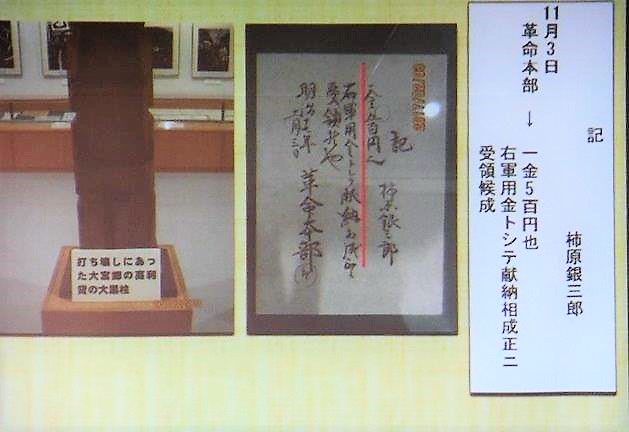 記
柿原銀三郎
11月3日
革命本部 ↓ 一金5百円也
右軍用金トシテ献納相成正ニ
受領候成
記
柿原銀三郎
右軍用金トシテ献納相成
革命本部
打ち壊しにあっ
た大宮郷の高利
貸の大黒柱